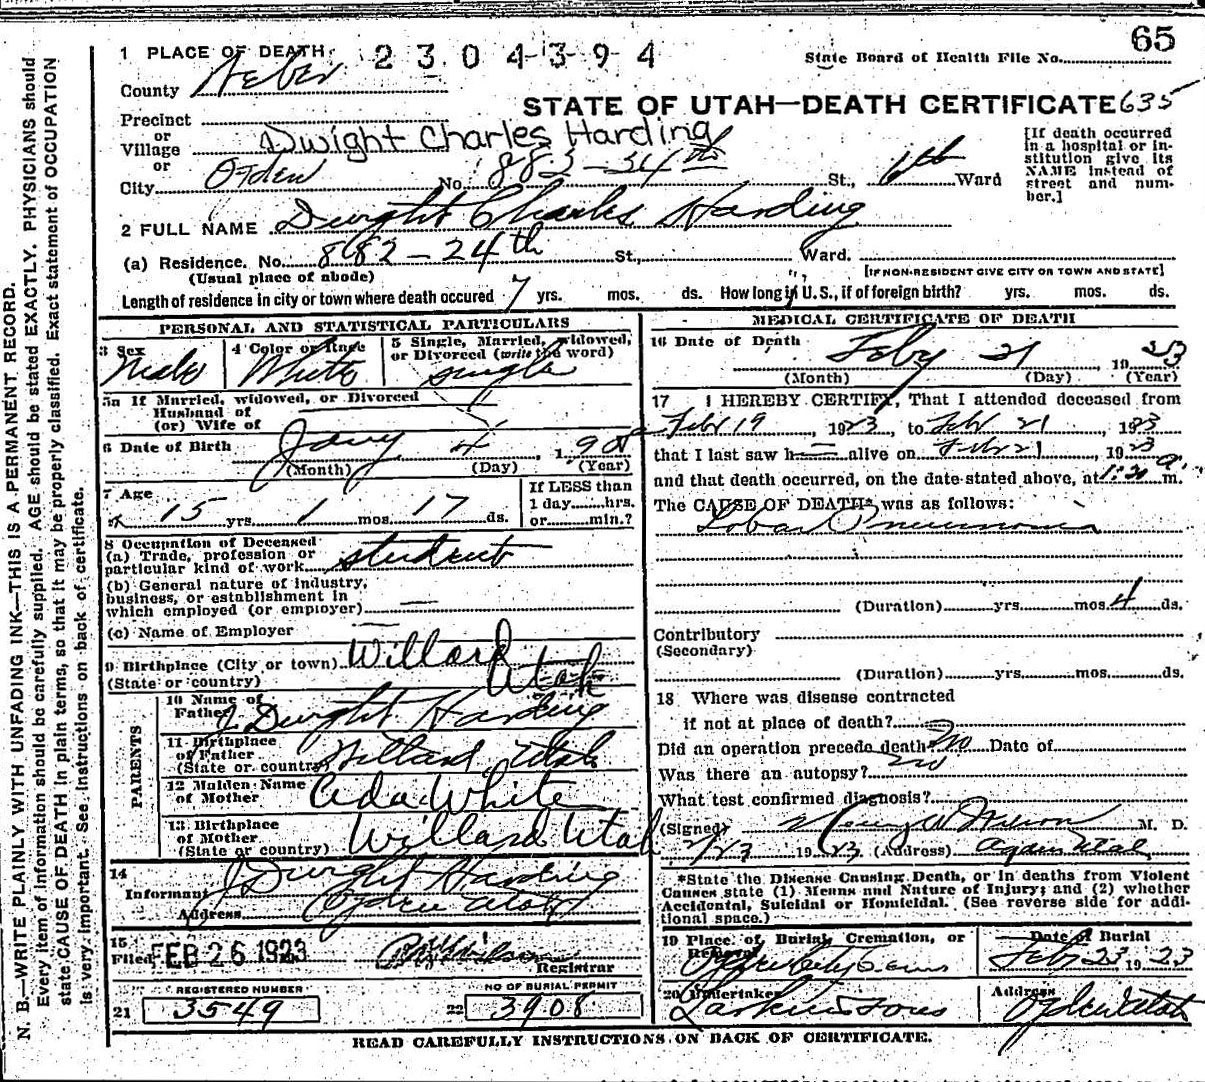 65
1 PLACE OF DEATH 2304394
State Board of Health File No.
County Weber
STATE OF UTAH—DEATH CERTIFICATE 635
Precinct
or
Village Dwight Charles Harding
or
City Ogden No. 882-24th St., 6th Ward
[If death occurred in a hospital or institution give its NAME instead of street and number.]
2 FULL NAME Dwight Charles Harding
(a) Residence. No. 882-24th St., Ward.
(Usual place of abode) [IF NON-RESIDENT GIVE CITY OR TOWN AND STATE]
Length of residence in city or town where death occured 7 yrs. mos. ds. How long in U.S., if of foreign birth? yrs. mos. ds.
PERSONAL AND STATISTICAL PARTICULARS
3 Sex Male
4 Color or Race White
5 Single, Married, widowed, or Divorced (write the word) single
5a If Married, widowed, or Divorced
Husband of
(or) Wife of
6 Date of Birth Jany 4 1908
(Month) (Day) (Year)
7 Age 15 yrs. 1 mos. 17 ds.
If LESS than
1 day hrs.
or min.?
8 Occupation of Deceased
(a) Trade, profession or
particular kind of work student
(b) General nature of industry,
business, or establishment in
which employed (or employer)
(c) Name of Employer
9 Birthplace (City or town) Willard
(State or country) Utah
PARENTS
10 Name of
Father J Dwight Harding
11 Birthplace
of Father
(State or country) Willard Utah
12 Maiden Name
of Mother Ada White
13 Birthplace
of Mother
(State or country) Willard Utah
14
Informant J Dwight Harding
Address Ogden Utah
15
Filed FEB 26 1923
Registrar
REGISTERED NUMBER
21 3549
NO OF BURIAL PERMIT
22 3908
MEDICAL CERTIFICATE OF DEATH
16 Date of Death Feby 21 1923
(Month) (Day) (Year)
17 I HEREBY CERTIFY, That I attended deceased from
Feb 19, 1923, to Feb 21, 1923
that I last saw h alive on Feb 21, 1923
and that death occurred, on the date stated above, at 1:20 a. m.
The CAUSE OF DEATH* was as follows:
Lobar Pneumonia
(Duration) yrs. mos. 4 ds.
Contributory
(Secondary)
(Duration) yrs. mos. ds.
18 Where was disease contracted
if not at place of death?
Did an operation precede death? no Date of
Was there an autopsy? no
What test confirmed diagnosis?
(Signed) M. D.
2/23 1923 (Address) Ogden Utah
*State the Disease Causing Death, or in deaths from Violent
Causes state (1) Means and Nature of Injury; and (2) whether
Accidental, Suicidal or Homicidal. (See reverse side for additional space.)
19 Place of Burial, Cremation, or
Removal Ogden City Cem
Date of Burial
Feby 23 1923
20 Undertaker Larkin & Sons
Address Ogden Utah
READ CAREFULLY INSTRUCTIONS ON BACK OF CERTIFICATE.
N. B.—WRITE PLAINLY WITH UNFADING INK—THIS IS A PERMANENT RECORD.
Every item of information should be carefully supplied. AGE should be stated EXACTLY. PHYSICIANS should
state CAUSE OF DEATH in plain terms, so that it may be properly classified. Exact statement of OCCUPATION
is very important. See instructions on back of certificate.